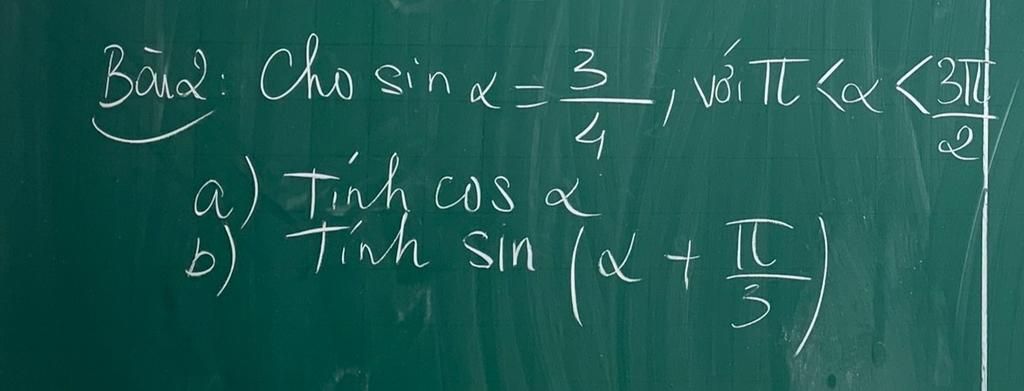 Bài 2: Cho sin α = 3/4, với π < α < 3π/2
a) Tính cos α
b) Tính sin (α + π/3)